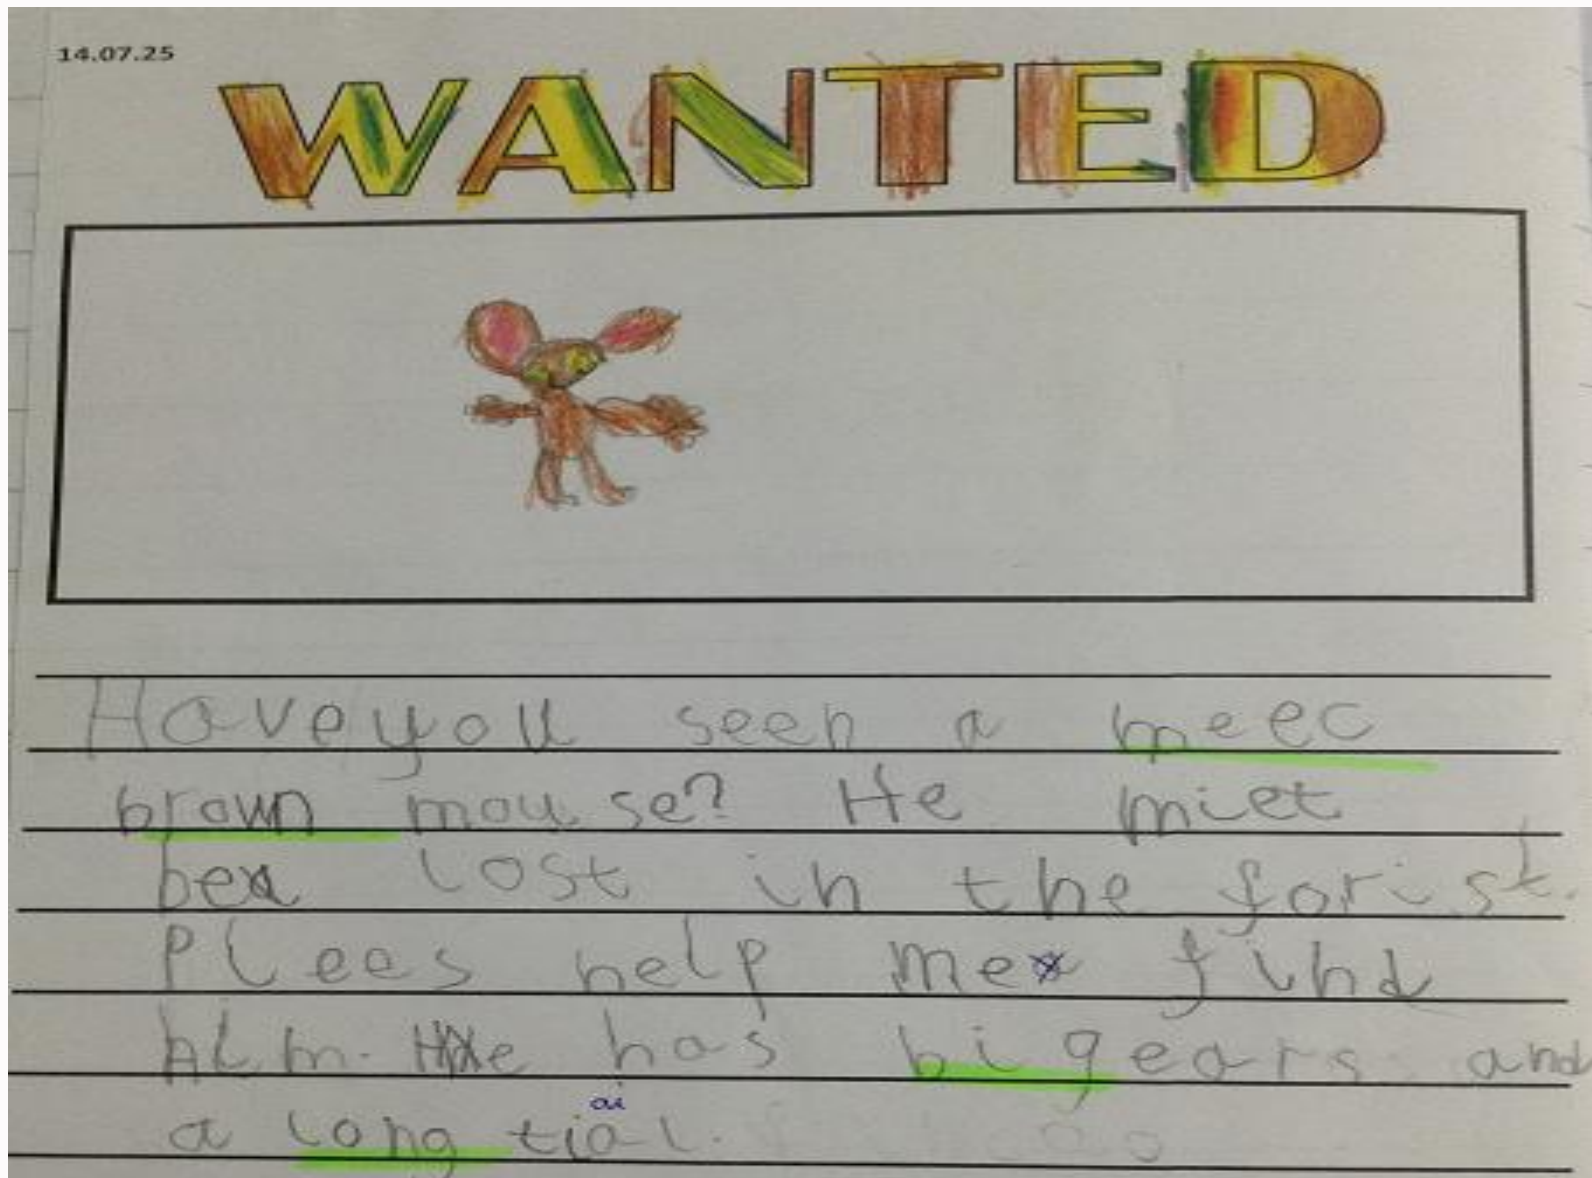 14.07.25
WANTED
Have you seen a meec
brown mouse? He miet
be lost in the forist.
Plees help me find
him. He has big ears and
ai
a long tial.